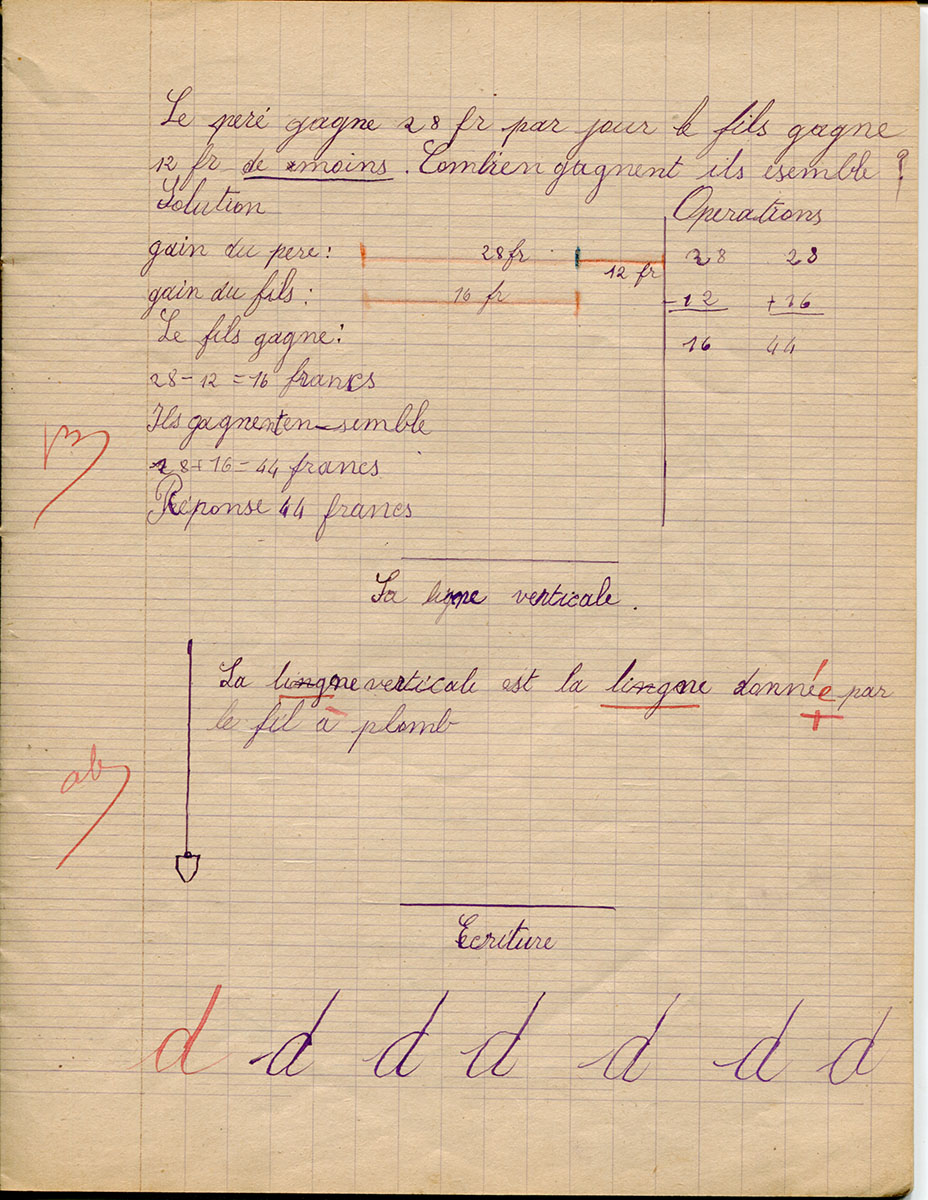 Le peré gagne 28 fr par jour le fils gagne
12 fr de moins. Combien gagnent ils esemble ?
Solution
Operations
gain du pere : 28 fr 12 fr
28 28
gain du fils : 16 fr
-12 +16
Le fils gagne :
16 44
28 - 12 = 16 francs
Ils gagnenten-semble
28 + 16 = 44 francs
B
Réponse 44 francs
La ligne verticale.
La lingne verticale est la lingne donnée par
le fil à plomb
ab
Ecriture
d d d d d d d